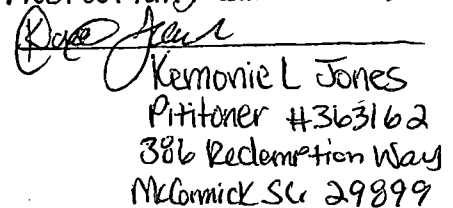 Kemonie L Jones
Pititoner #363162
386 Redemption Way
McCormick SC 29899